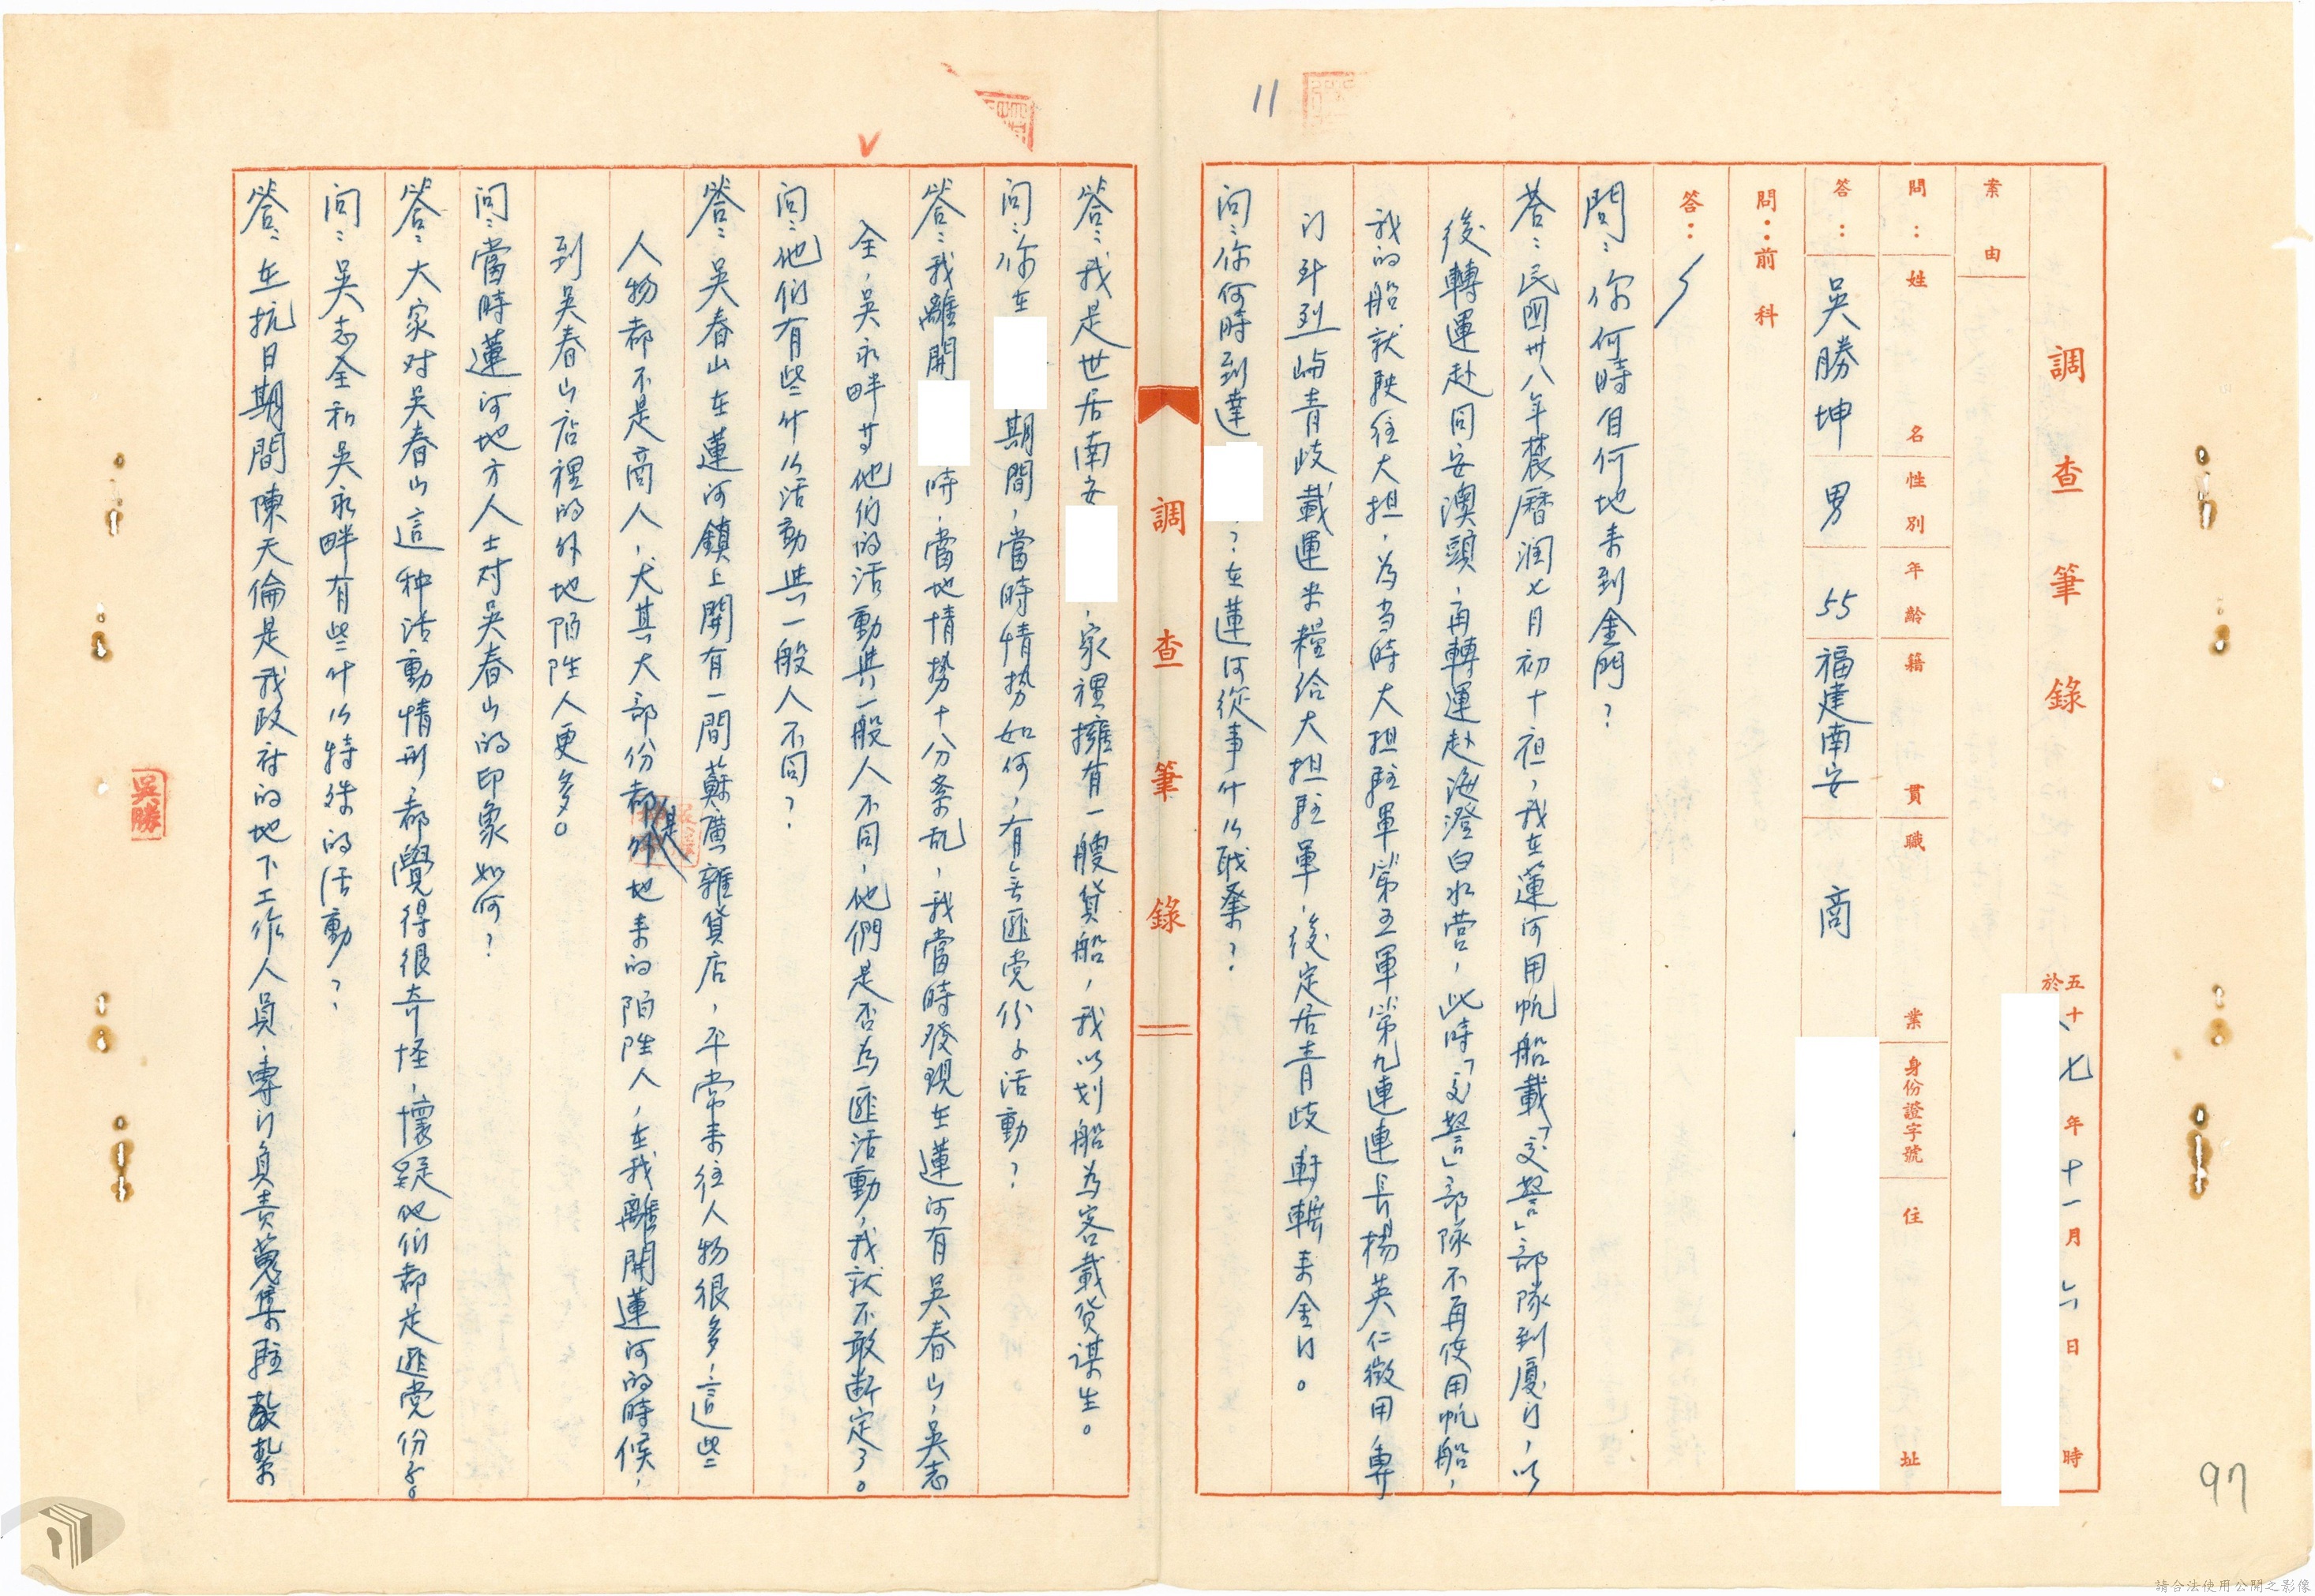 11
調查筆錄
五十七年十一月六日時
於
案由
問：姓名性別年齡籍貫職業身份證字號住址
答：吳勝坤男55福建南安商
問：前科
答：
問：你何時自何地來到金門？
答：民國卅八年農曆潤七月初十祖，我在蓮河用帆船載「交警」部隊到廈门，以
後轉運赴同安澳頭，再轉運赴海澄白水营，此時「交警」部隊不再使用帆船，
我的船就駛往大担，为当時大担駐軍第五軍第九連連長楊英仁徵用，專
门到烈嶼青歧載運米糧給大担駐軍，後定居青歧輾來金门。
問：你何時到達？在蓮河從事什么职業？
調查筆錄
答：我是世居南安，家裡擁有一艘貨船，我以划船為客載货谋生。
问：你在期間，當時情势如何，有无匪党份子活動？
答：我離開時，當地情势十分紊乱，我當時發現在蓮河有吳春山，吳志
全，吳永畔等他们的活動與一般人不同，他們是否為匪活動，我就不敢断定了。
问：他们有些什么活動與一般人不同？
答：吳春山在蓮河鎮上開有一間蘇廣雜貨店，平常来往人物很多，這些
人物都不是商人，尤其大部份都是外地来的陌陛人，在我離開蓮河的時候，
到吳春山店裡的外地陌陛人更多。
问：當時蓮河地方人士对吳春山的印象如何？
答：大家对吳春山這种活動情形，都覺得很奇怪，懷疑他们都是匪党份子。
问：吳志全和吳永畔有些什么特殊的活動？
答：在抗日期間陳天倫是我政府的地下工作人員，專门負責蒐集駐
吳勝
97
請合法使用公開之影像